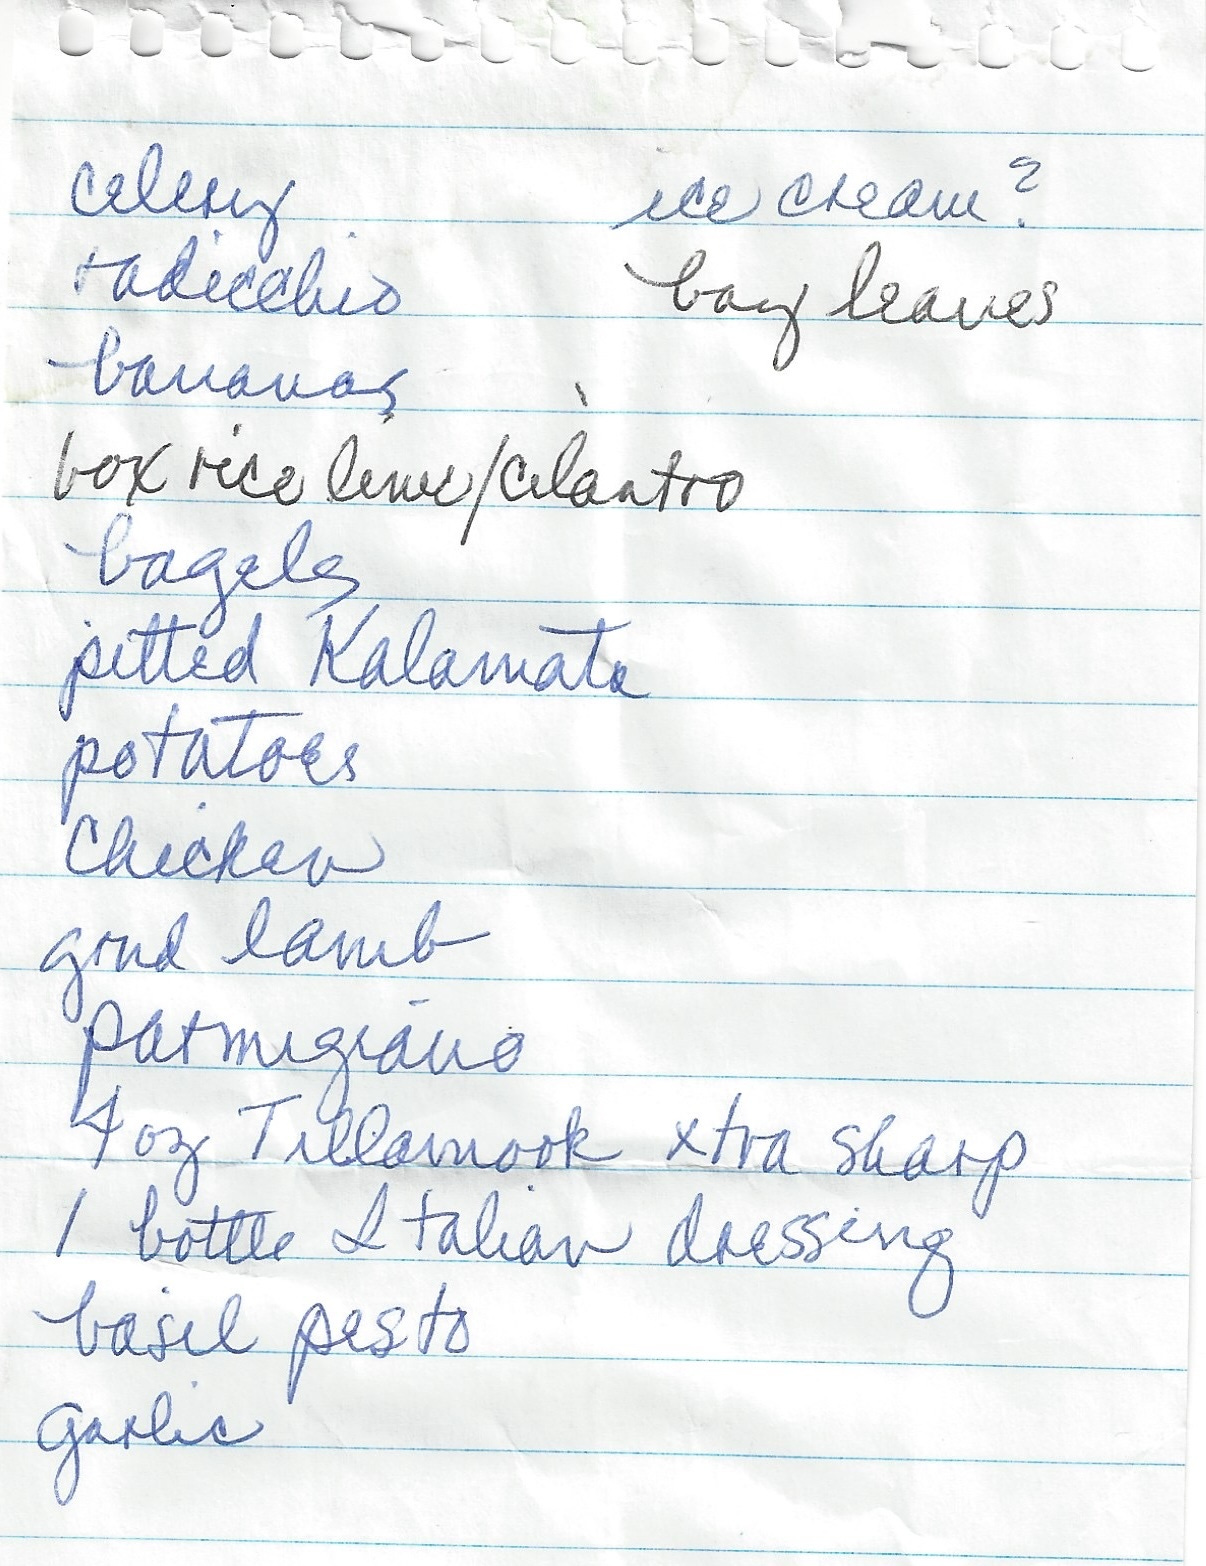 celery
radicchio
bananas
box rice lime/cilantro
bagels
pitted Kalamata
potatoes
Chicken
grnd lamb
parmigiano
4 oz Tillamook xtra sharp
1 bottle Italian dressing
basil pesto
garlic
ice cream?
bay leaves